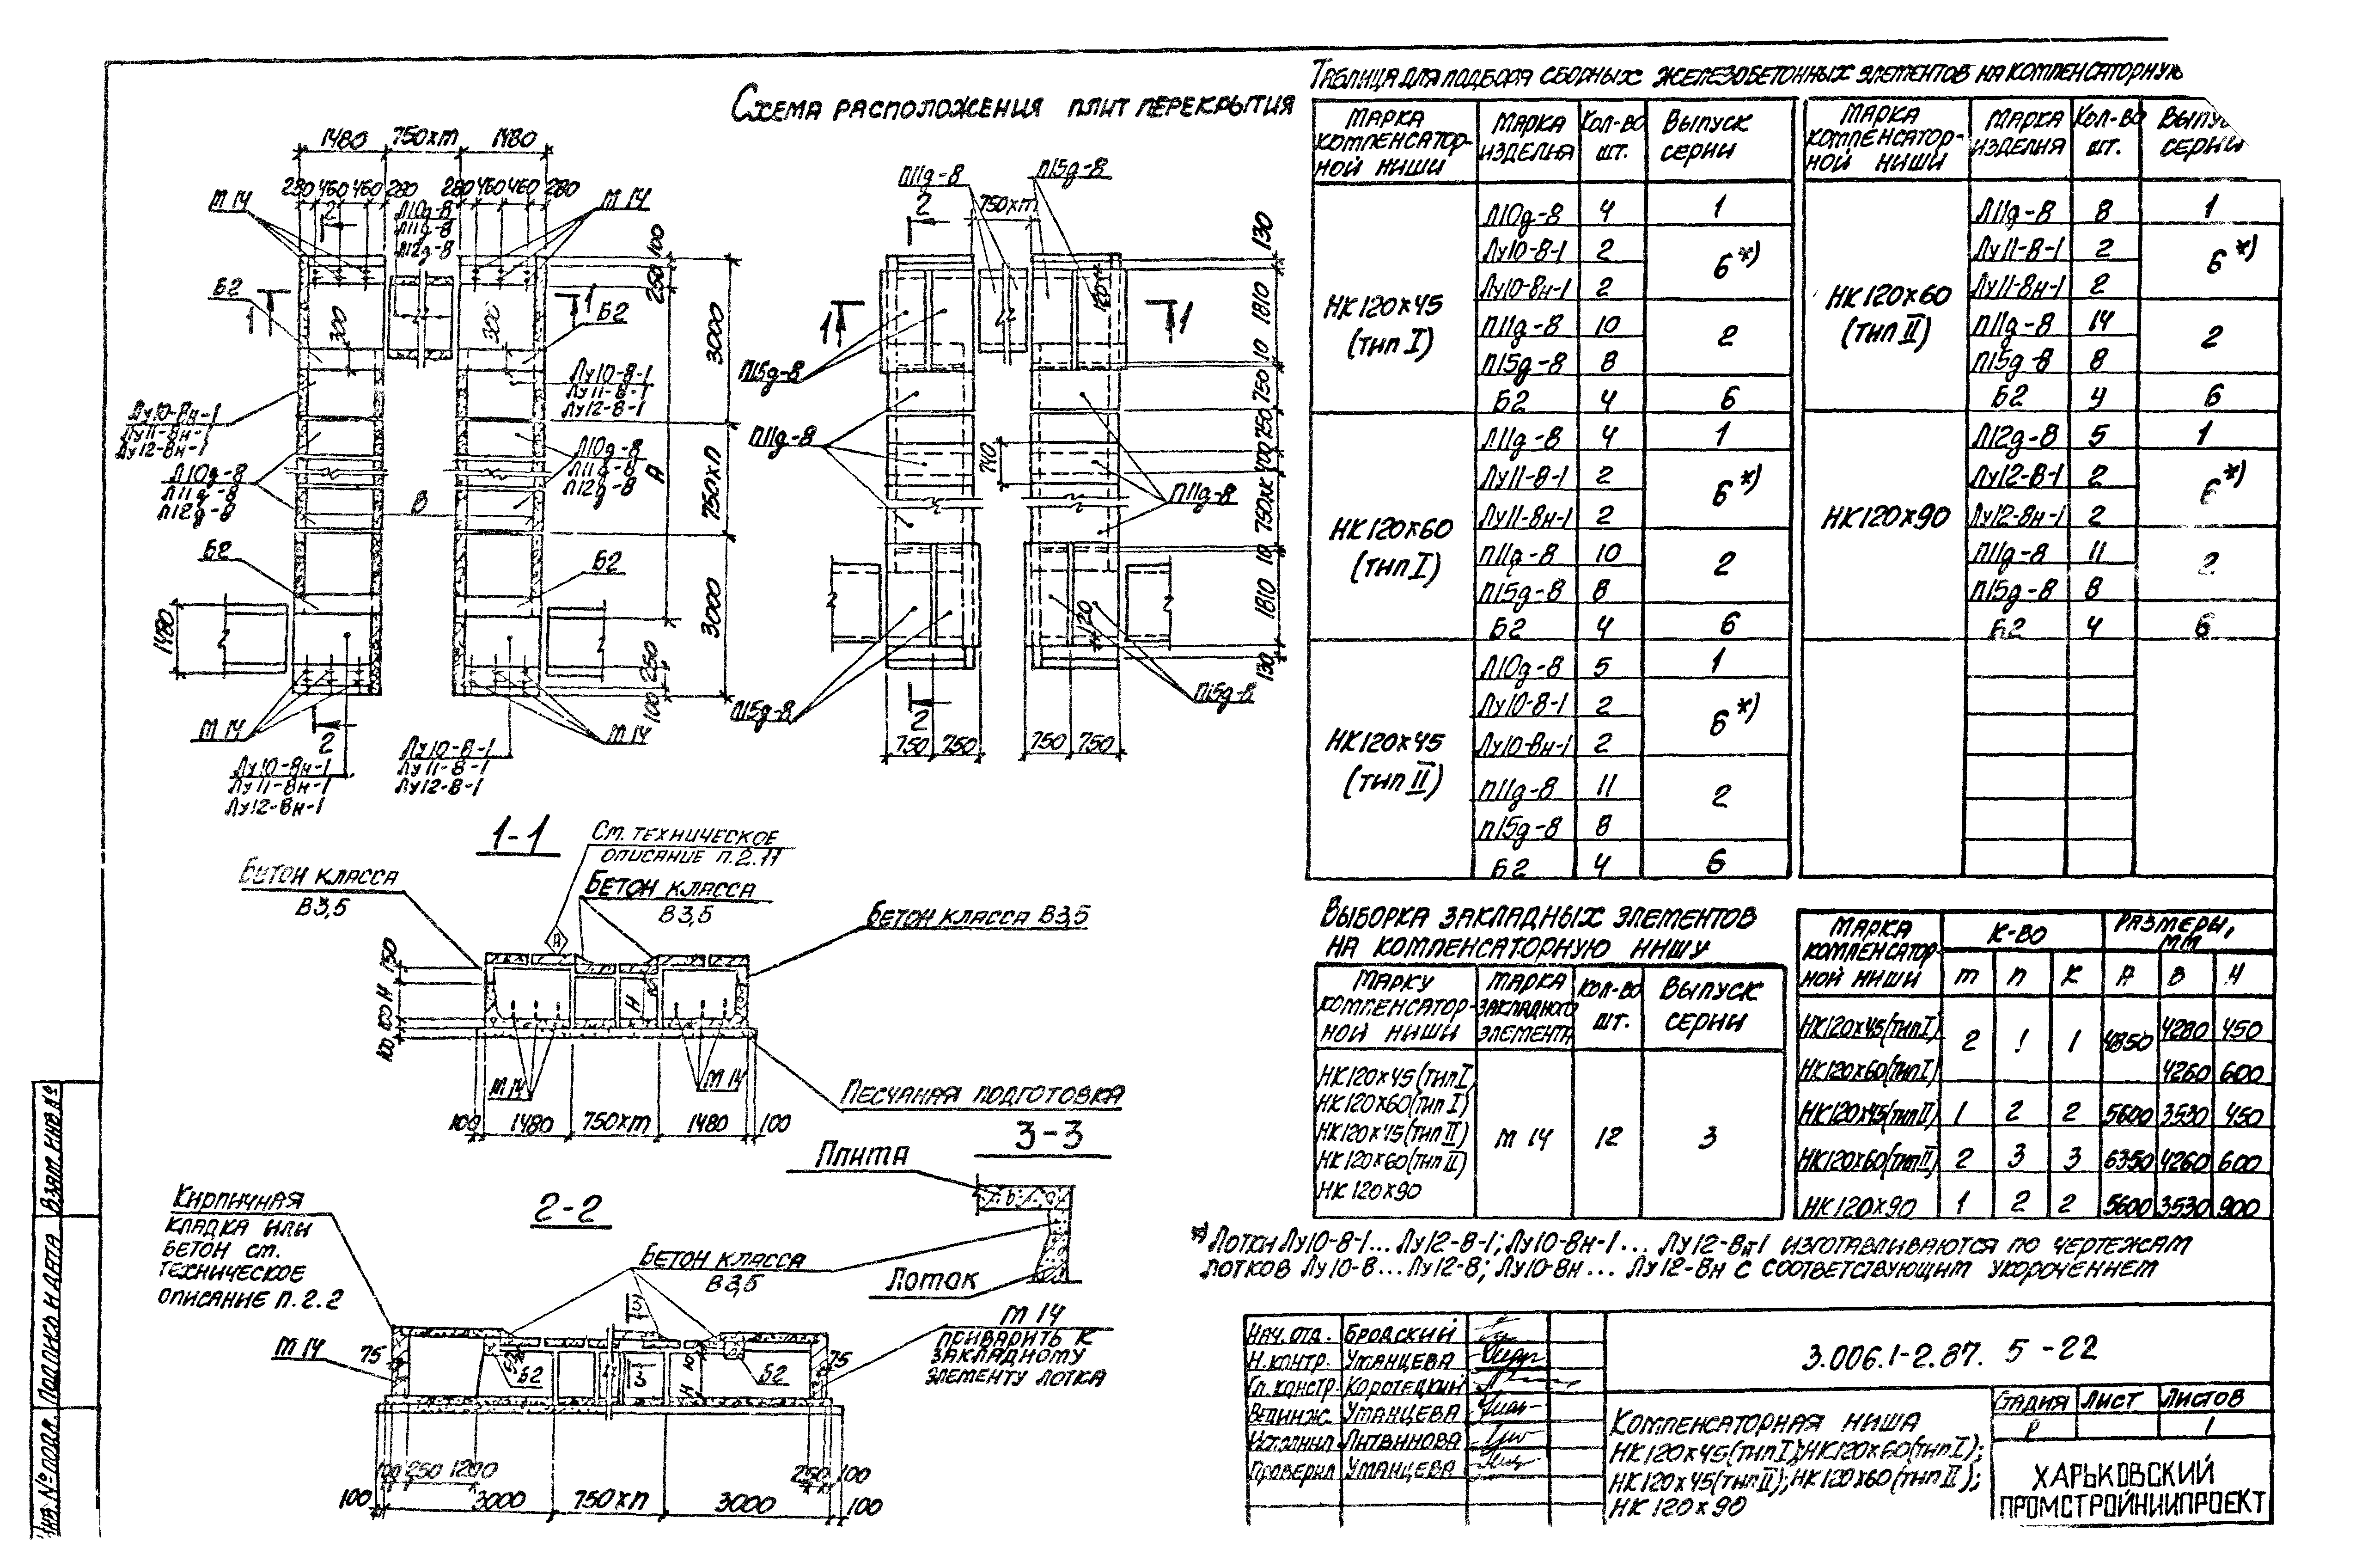 Схема расположения плит перекрытия
Таблица для подбора сборных железобетонных элементов на компенсаторную
1480 750хm 1480
280 460 460 280 280 460 460 280
М 14
М 14
2
Л10д-8
Л11д-8
Л12д-8
100
250
Б2
1
1
Б2
300
300
3000
Лу10-8-1
Лу11-8-1
Лу12-8-1
Лу10-8н-1
Лу11-8н-1
Лу12-8н-1
Л10д-8
Л11д-8
Л12д-8
Л10д-8
Л11д-8
Л12д-8
В
А
750хп
Б2
Б2
1480
3000
250
100
М 14
2
М 14
Лу10-8н-1
Лу11-8н-1
Лу12-8н-1
Лу10-8-1
Лу11-8-1
Лу12-8-1
П11д-8
П15д-8
2
750хm
130
1810
10
750
750
400
750хк
10
1810
130
120
1
1
П15д-8
П11д-8
740
П11д-8
120
П15д-8
П15д-8
2
750 750 750 750
Марка компенсатор-ной ниши
Марка изделия
Кол-во шт.
Выпуск серии
НК120х45 (тип I)
Л10д-8 4 1
Лу10-8-1 2 6*)
Лу10-8н-1 2
П11д-8 10 2
П15д-8 8
Б2 4 6
НК120х60 (тип I)
Л11д-8 4 1
Лу11-8-1 2 6*)
Лу11-8н-1 2
П11д-8 10 2
П15д-8 8
Б2 4 6
НК120х45 (тип II)
Л10д-8 5 1
Лу10-8-1 2 6*)
Лу10-8н-1 2
П11д-8 11 2
П15д-8 8
Б2 4 6
Марка компенсатор-ной ниши
Марка изделия
Кол-во шт.
серии
НК120х60 (тип II)
Л11д-8 8 1
Лу11-8-1 2 6*)
Лу11-8н-1 2
П11д-8 14 2
П15д-8 8
Б2 4 6
НК120х90
Л12д-8 5 1
Лу12-8-1 2 6*)
Лу12-8н-1 2
П11д-8 11 2
П15д-8 8
Б2 4 6
1-1
См. техническое
описание п.2.11
Бетон класса
В3,5
Бетон класса
В3,5
Бетон класса В3,5
А
150
Н
100
100
Н
М 14
М 14
Песчаная подготовка
100 1480 750хm 1480 100
3-3
Плита
Лоток
2-2
Кирпичная
кладка или
бетон см.
техническое
описание п.2.2
Бетон класса
В3,5
М 14
приварить к
закладному
элементу лотка
М 14
75
Б2
3
3
Н
Б2
75
250 1200
250 100
100 3000 750хп 3000 100
Выборка закладных элементов
на компенсаторную нишу
Марку компенсатор-ной ниши
Марка закладного элемента
Кол-во шт.
Выпуск серии
НК120х45(тип I)
НК120х60(тип I)
НК120х45(тип II)
НК120х60(тип II)
НК120х90
М 14 12 3
Марка компенсатор-ной ниши
К-во
Размеры, мм
m п к А В Н
НК120х45(тип I) 2 1 1 4850 4280 450
НК120х60(тип I) 4260 600
НК120х45(тип II) 1 2 2 5600 3530 450
НК120х60(тип II) 2 3 3 6350 4260 600
НК120х90 1 2 2 5600 3530 900
*) Лотки Лу10-8-1... Лу12-8-1; Лу10-8н-1... Лу12-8н-1 изготавливаются по чертежам
лотков Лу10-8... Лу12-8; Лу10-8н... Лу12-8н с соответствующим укорочением
Нач. отд. Бродский
Н.контр. Уманцева
Гл. констр. Коротецкий
Вед.инж. Уманцева
Исполнил Литвинова
Проверил Уманцева
3.006.1-2.87. 5-22
Компенсаторная ниша
НК120х45(тип I); НК120х60(тип I);
НК120х45(тип II); НК120х60(тип II);
НК 120х90
Стадия Лист Листов
Р 1
Харьковский
Промстройниипроект
Инв.№ подл. Подпись и дата Взам. инв.№